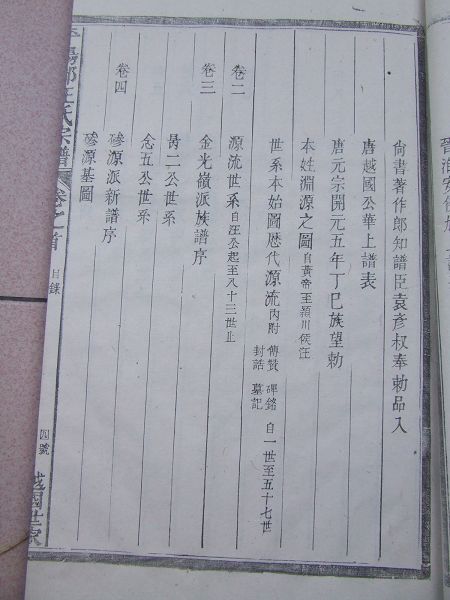 尙書著作郎知譜臣袁彥权奉勅品入
唐越國公華上譜表
唐元宗開元五年丁巳族望勅
本姓淵源之圖 自黃帝至潁川侯汪
世系本始圖歷代源流 內附 傳贊 碑銘 封誥 墓記 自一世至五十七世
卷二
源流世系 自汪公起至八十三世止
卷三
金光嶺派族譜序
昺二公世系
念五公世系
卷四
磣源派新譜序
磣源基圖
平陽郡汪氏宗譜
卷之首
目錄
四號
越國世家